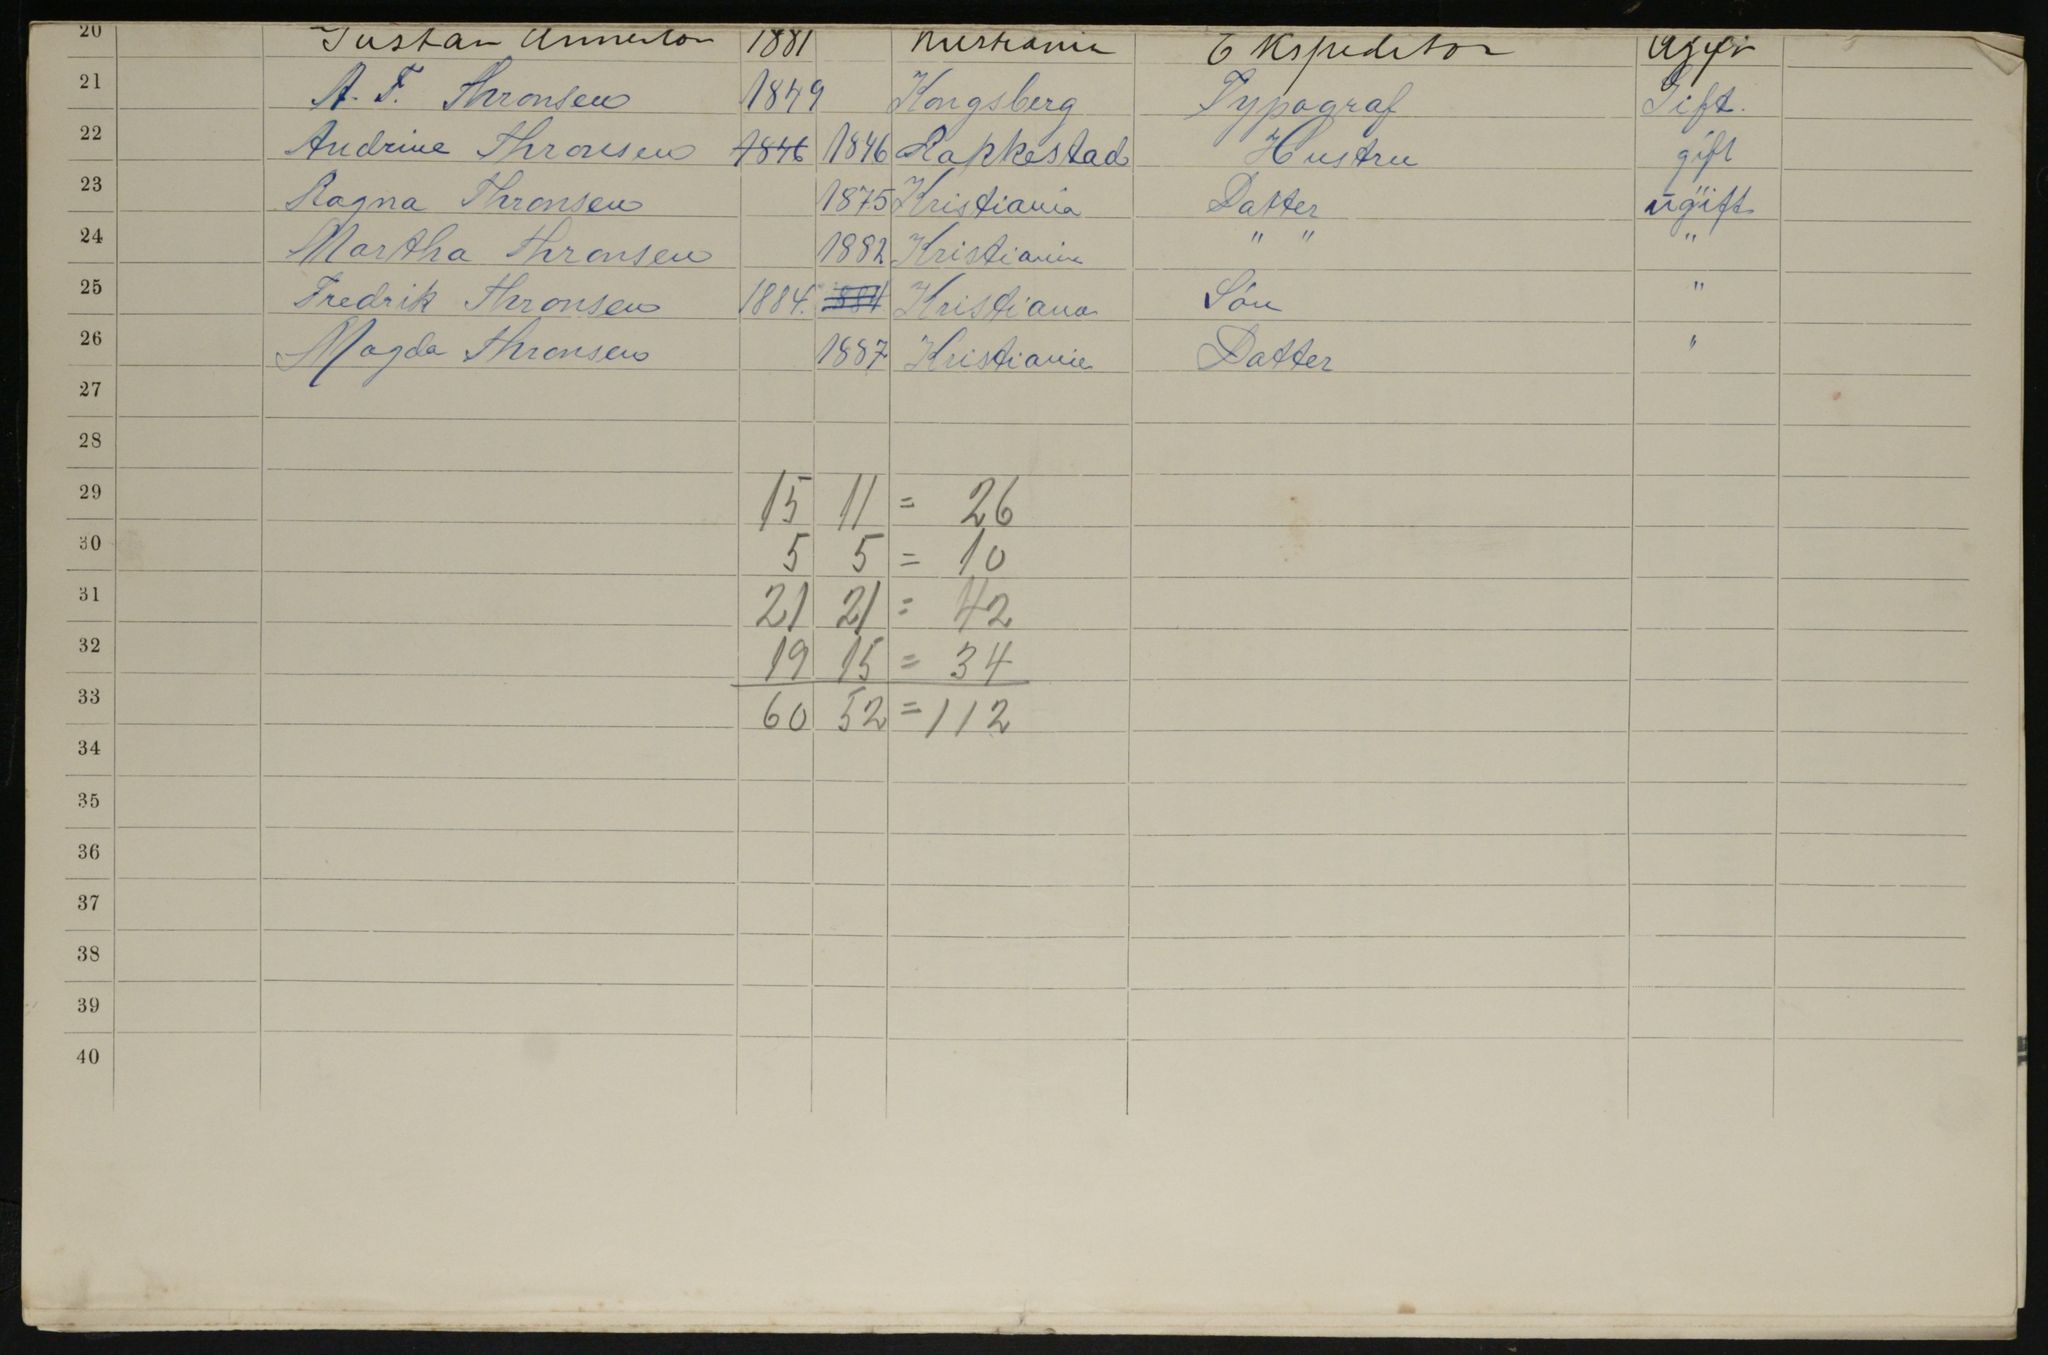 20 Gustav 1881 Kristiania Ekspeditor Ugift
21 A. F. Thronsen 1849 Kongsberg Typograf Gift.
22 Andrine Thronsen 1846 1846 Rakkestad Hustru gift
23 Ragna Thronsen 1875 Kristiania Datter ugift
24 Martha Thronsen 1882 Kristiania " " "
25 Fredrik Thronsen 1884. 1884 Kristiana Søn "
26 Magda Thronsen 1887 Kristiania Datter "
27
28
29 15 11 = 26
30 5 5 = 10
31 21 21 = 42
32 19 15 = 34
33 60 52 = 112
34
35
36
37
38
39
40